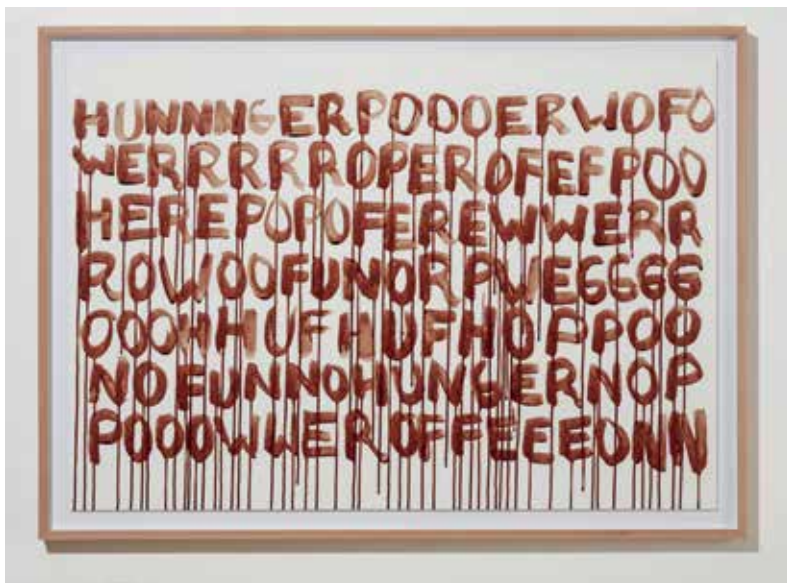 HUNNNGERPOOOERWOFO
WERRRRROPEROFEFPOO
HEREPOPOFEREWWERR
ROWOOFUNORPWEGGGG
OOOHHUFHUFHOPPOO
NOFUNNOHUNGERNOP
POOOWWEROFFEEEONN